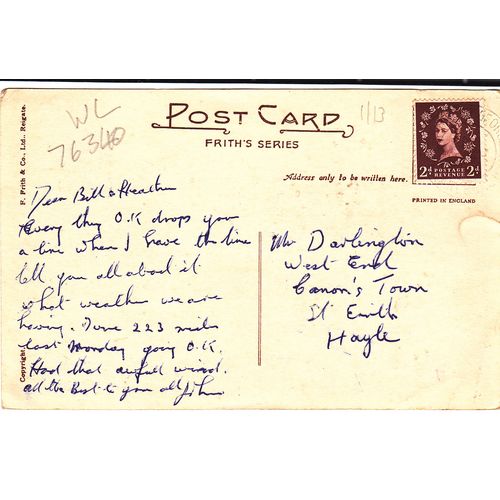 WL
76340
1/13
POST CARD
FRITH'S SERIES
Address only to be written here.
2d POSTAGE REVENUE 2d
PRINTED IN ENGLAND
F. Frith & Co., Ltd., Reigate.
Copyright
Dear Bill & Heather
Every thing O.K drops you
a line when I have the time
tell you all about it
what weather we are
having. 223 miles
last Monday going O.K.
Had that awfull wind.
all the Best to you all John
Mr Darlington
West End
Canon's Town
St Erith
Hayle